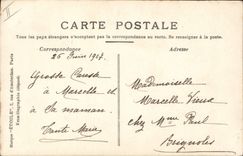 CARTE POSTALE
Tous les pays étrangers n'acceptent pas la correspondance au recto. Se renseigner à la poste.
Correspondance
Adresse
26 Juin 1907
Mademoiselle
Grosse Caresse
à Marcelle et
Marcelle
à sa maman
chez Mme Paul
Tante Marie
Brignoles